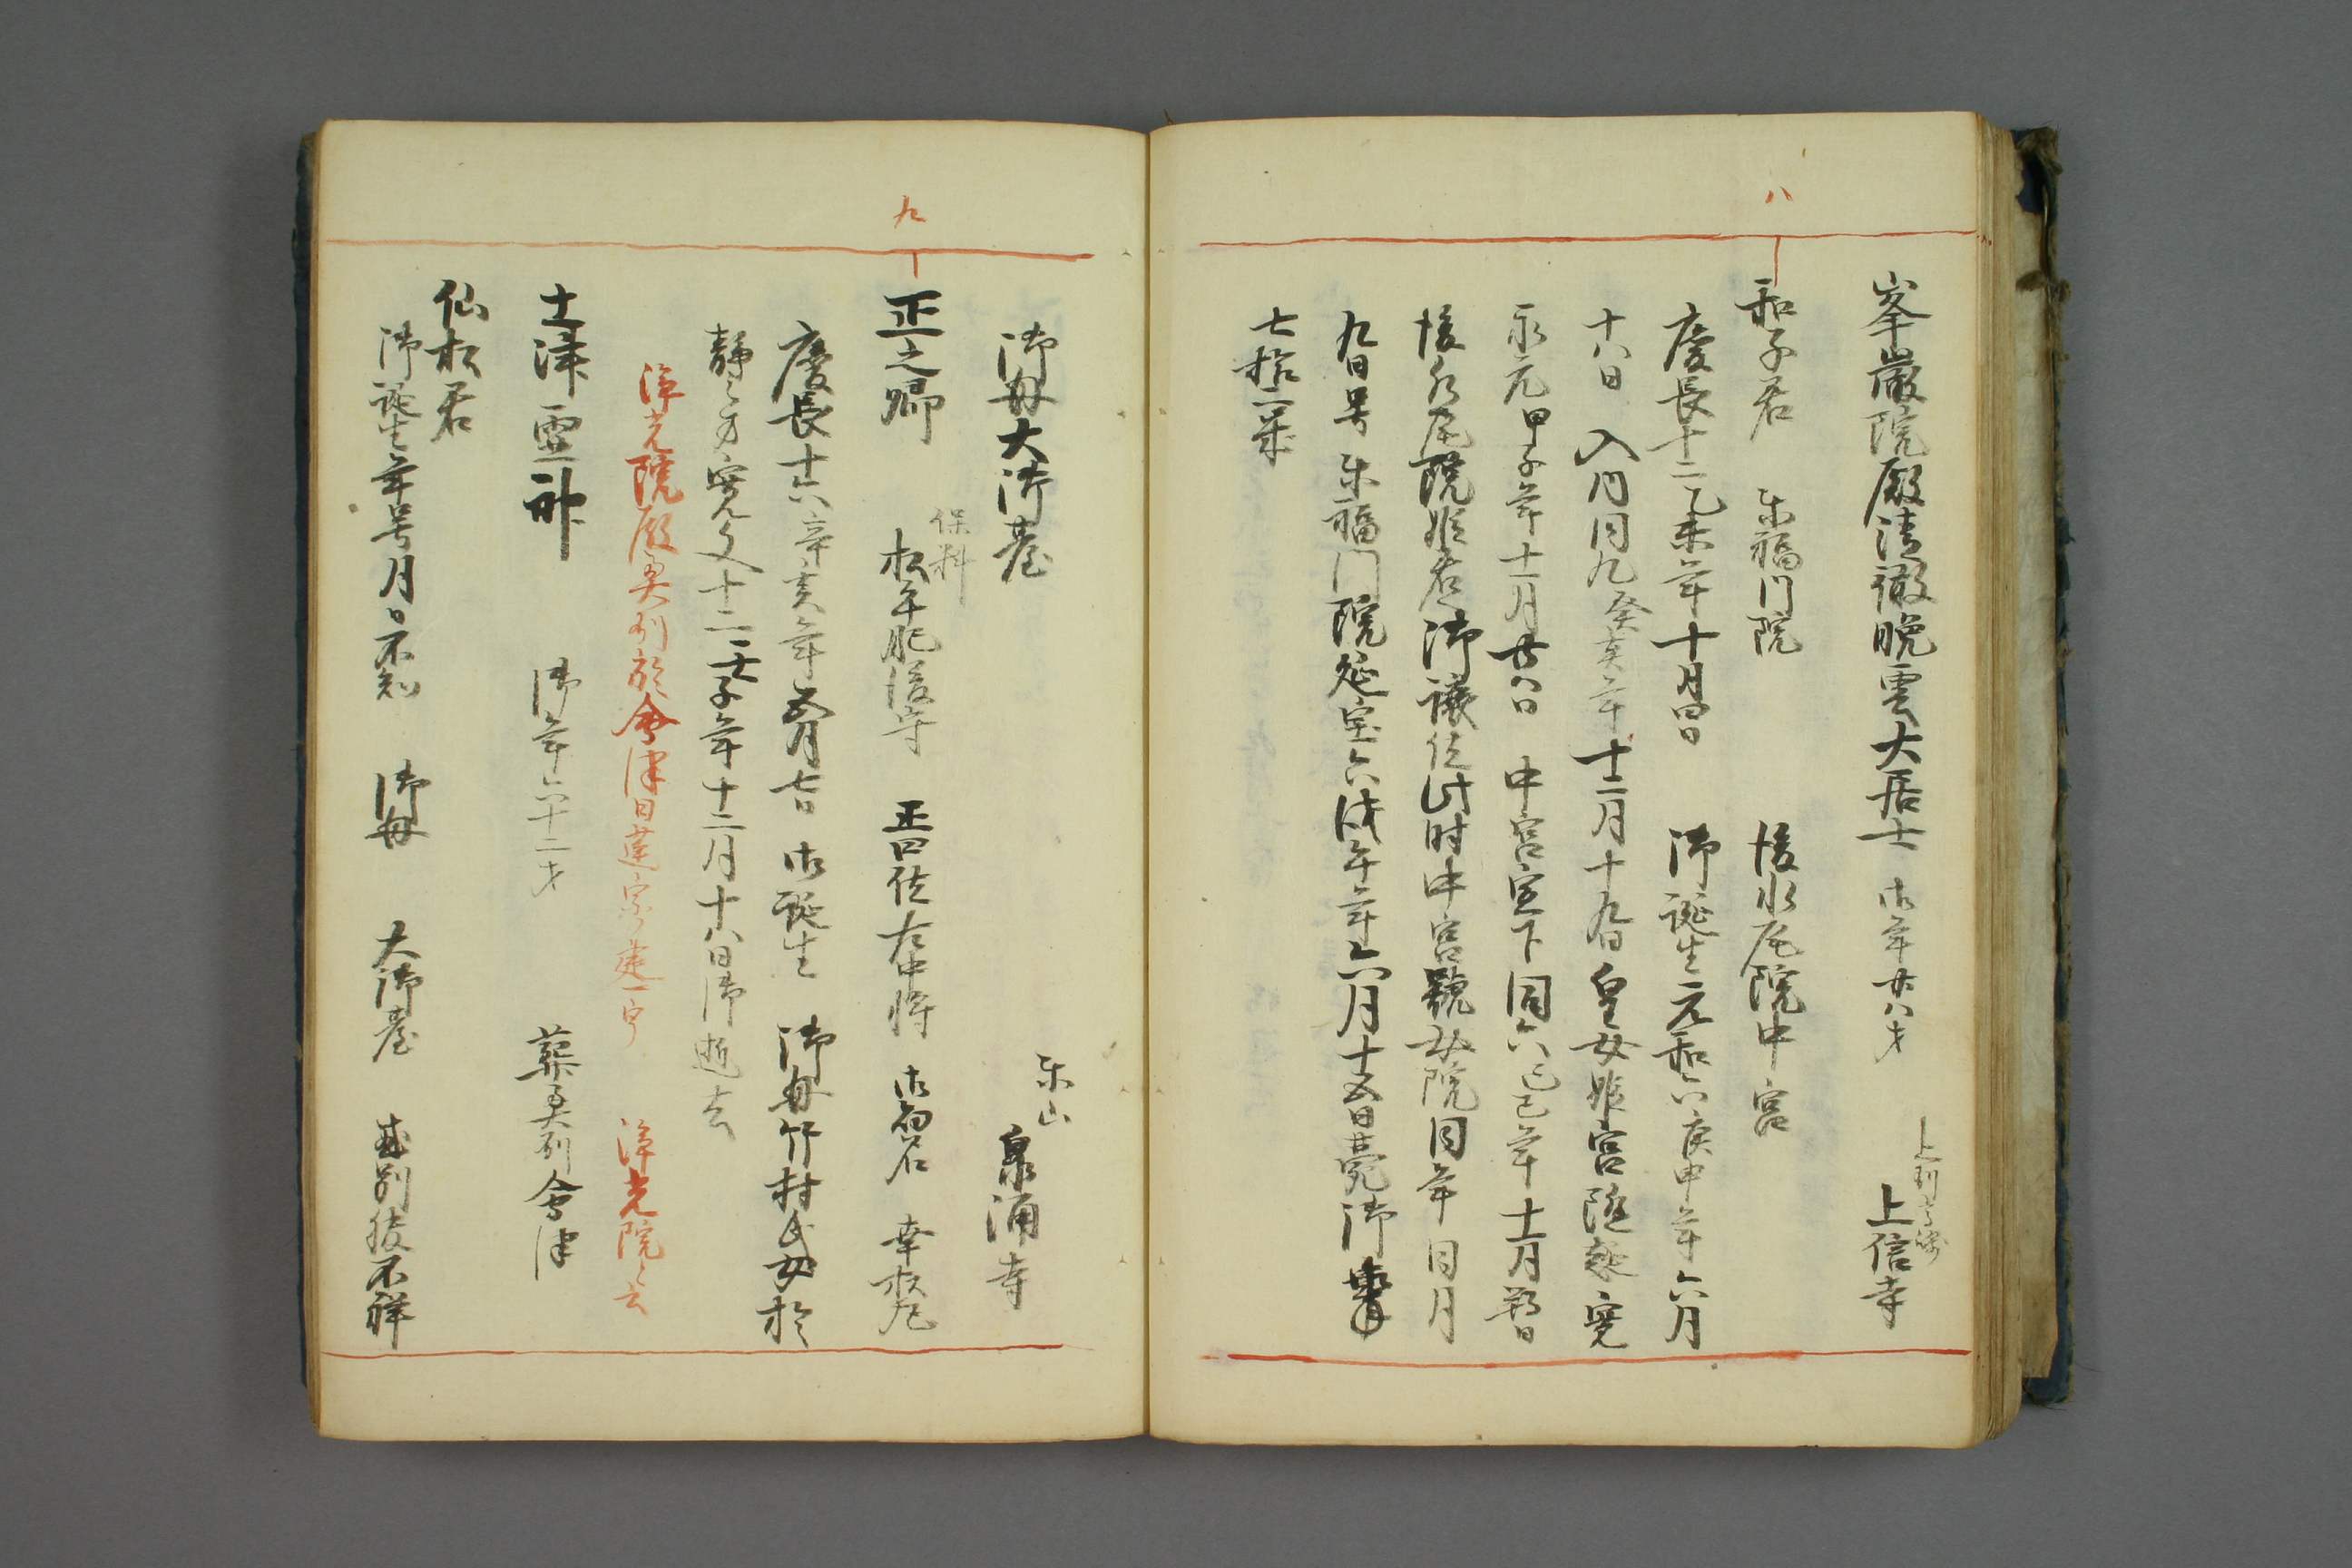 峯巌院殿清徹晩雲大居士 御年廿八才 上州高崎 上信寺
八
和子君 東福門院 後水尾院中宮
慶長十二乙未年十月四日 御誕生元和六庚申年六月
十八日 入内同九癸亥年十一月十九日皇女姫宮降誕寛
永元甲子年十一月廿八日 中宮宣下同六己巳年十一月朔日
後水尾院姫君御譲位此时中宮號女院同年同月
九日号東福門院延宝六戊午年六月十五日薨御
七拾二歳
御母大御臺 東山 泉涌寺
九
正之卿 保科 松平肥後守 正四位左中将 御初名 幸松丸
慶長十六辛亥年五月七日 御誕生 御母竹村氏女於
静之方寛文十二壬子年十二月十八日御逝去
浄光院殿奥州於會津日蓮宗ノ建一宇 浄光院ト云
土津霊神 御年六十二才 葬奥州會津
仙松君
御誕生年号月日不知 御母 大御臺 或別腹不祥